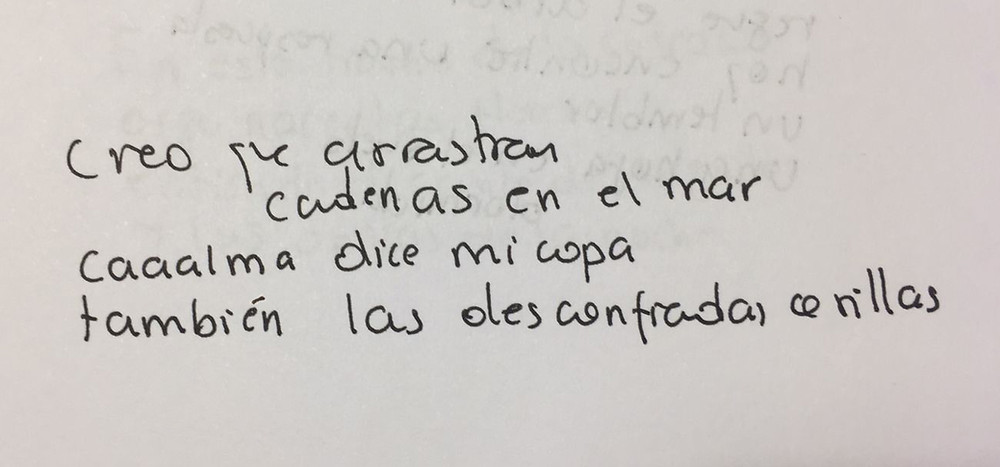 Creo que arrastran
cadenas en el mar
caaalma dice mi copa
también las desconfiadas cerillas